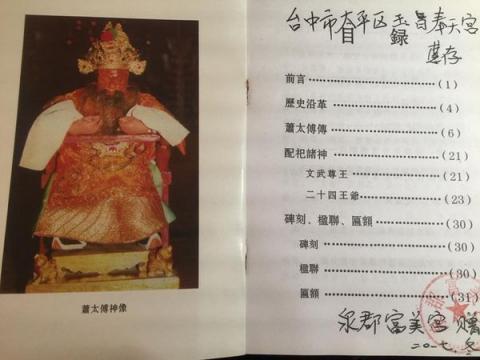 蕭太傅神像
台中市太平区玉旨奉天宮
惠存
目 錄
前言……………………(1)
歷史沿革………………(4)
蕭太傅傳………………(6)
配祀諸神………………(21)
文武尊王………………(21)
二十四王爺……………(23)
碑刻、楹聯、匾額………(30)
碑刻……………………(30)
楹聯……………………(30)
匾額……………………(31)
泉郡富美宮 贈